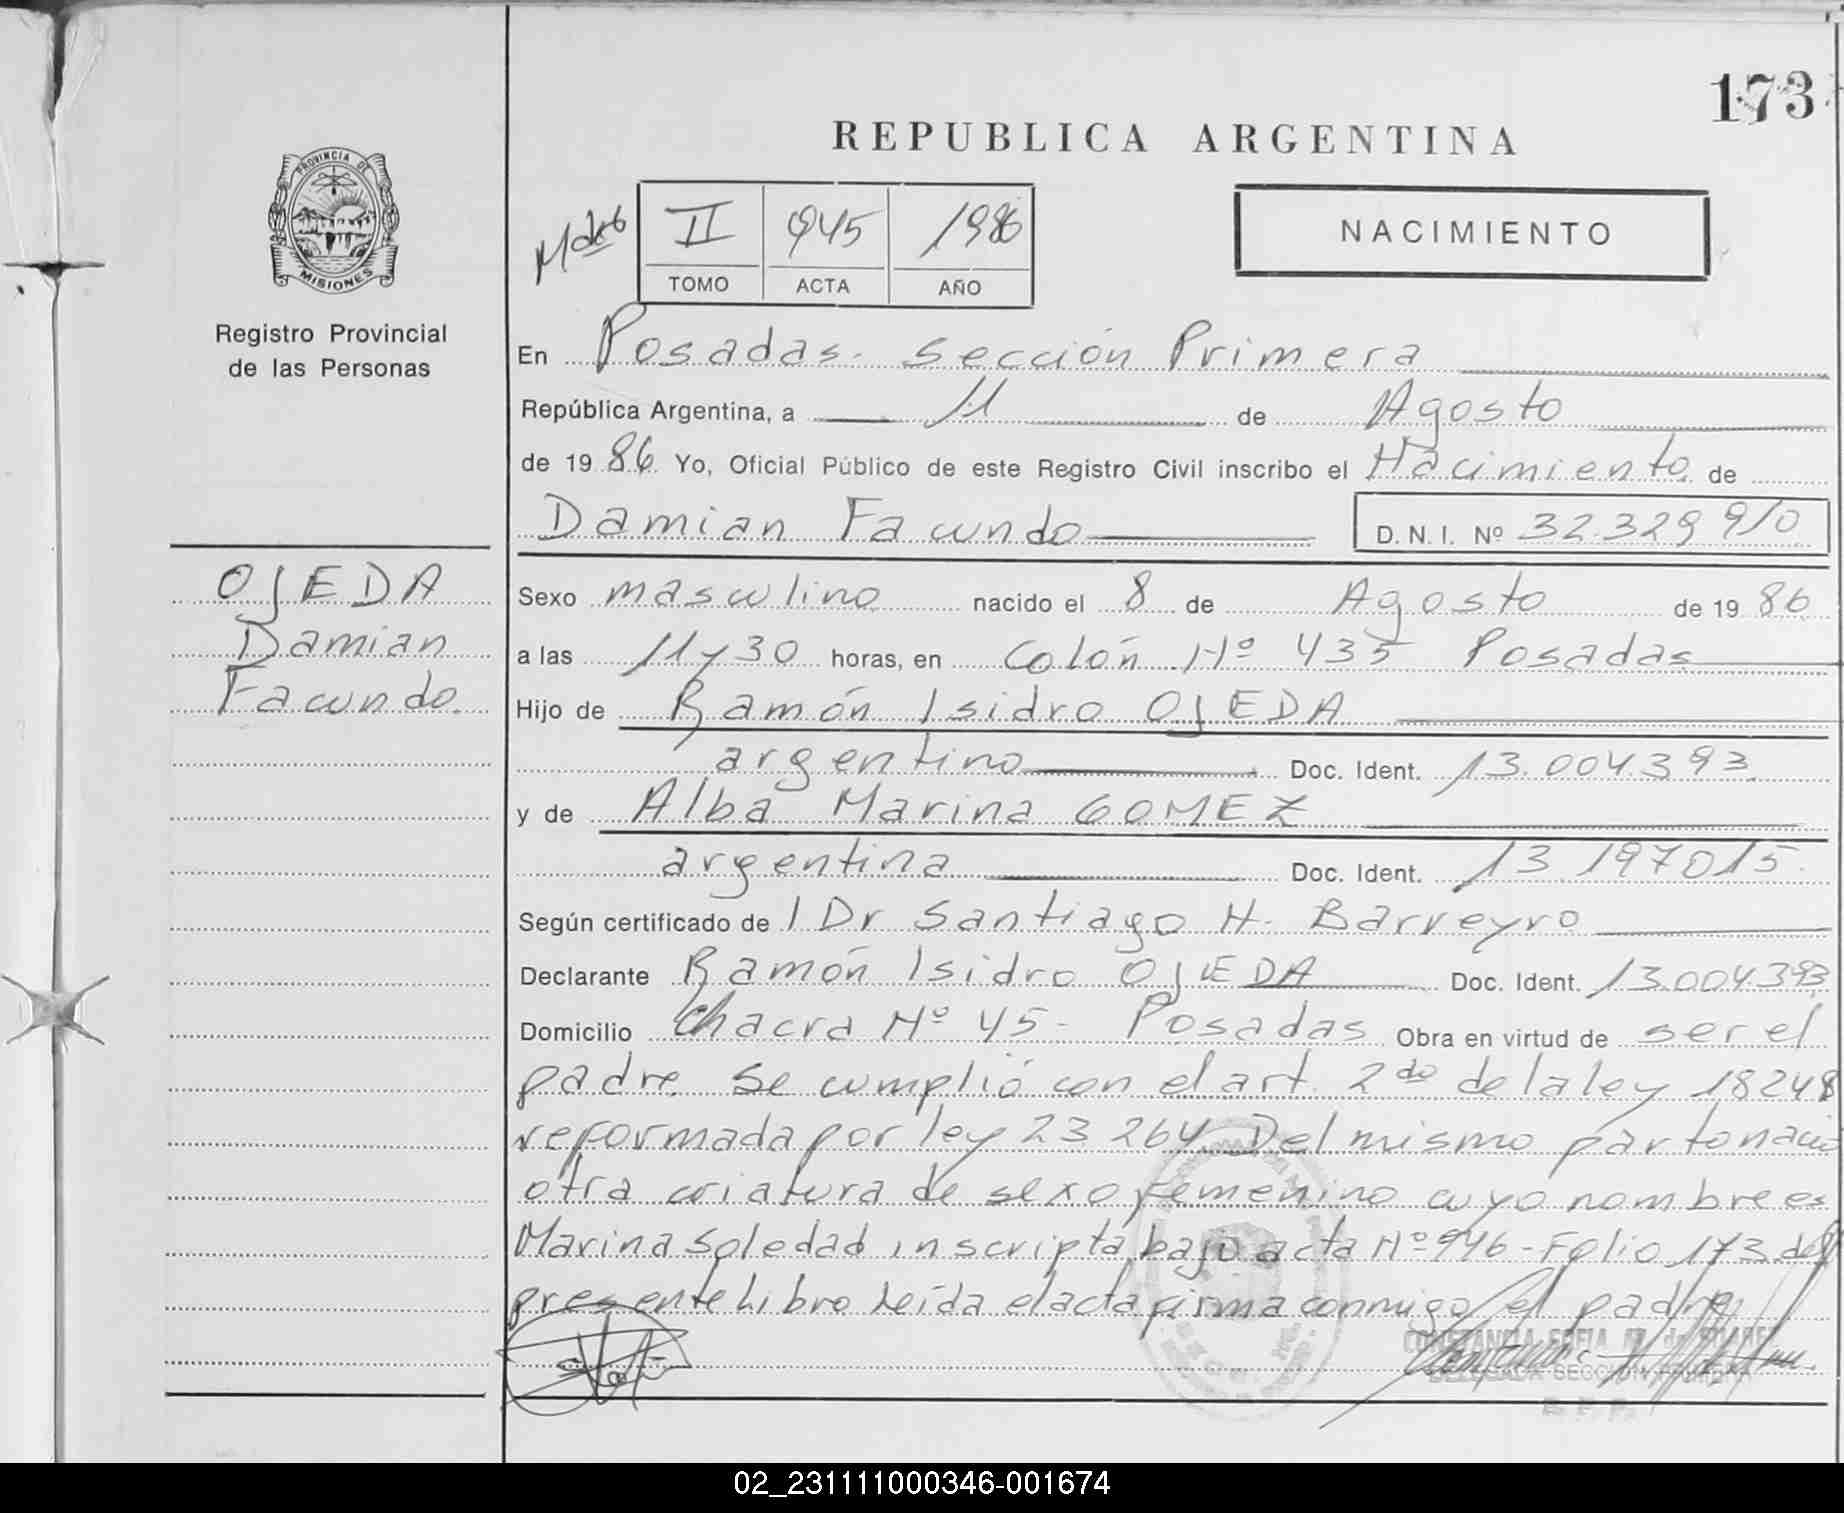 173
REPUBLICA ARGENTINA
PROVINCIA DE
MISIONES
Registro Provincial
de las Personas
II 945 1986
TOMO ACTA AÑO
NACIMIENTO
En Posadas. Sección Primera
República Argentina, a 11 de Agosto
de 1986. Yo, Oficial Público de este Registro Civil inscribo el Nacimiento de
Damian Facundo D. N. I. Nº 32.329 910
OJEDA
Damian
Facundo.
Sexo masculino nacido el 8 de Agosto de 1986
a las 11 y 30 horas, en Colón Nº 435 Posadas
Hijo de Ramón Isidro OJEDA
argentino Doc. Ident. 13.004.393
y de Alba Marina GOMEZ
argentina Doc. Ident. 13 197015
Según certificado de l Dr Santiago H. Barreyro
Declarante Ramón Isidro OJEDA Doc. Ident. 13.004.393
Domicilio Chacra Nº 45 - Posadas Obra en virtud de ser el
padre. Se cumplió con el art. 2do de la ley 18248
reformada por ley 23 264 Del mismo parto nacio
otra criatura de sexo femenino cuyo nombre es
Marina Soledad inscripta bajo acta Nº 946 - Folio 173 del
presente Libro Leída el acta firma conmigo el padre
CONSTANCIA SOFIA
DELEGADA SECCION PRIMERA
R. P. P.
02_231111000346-001674